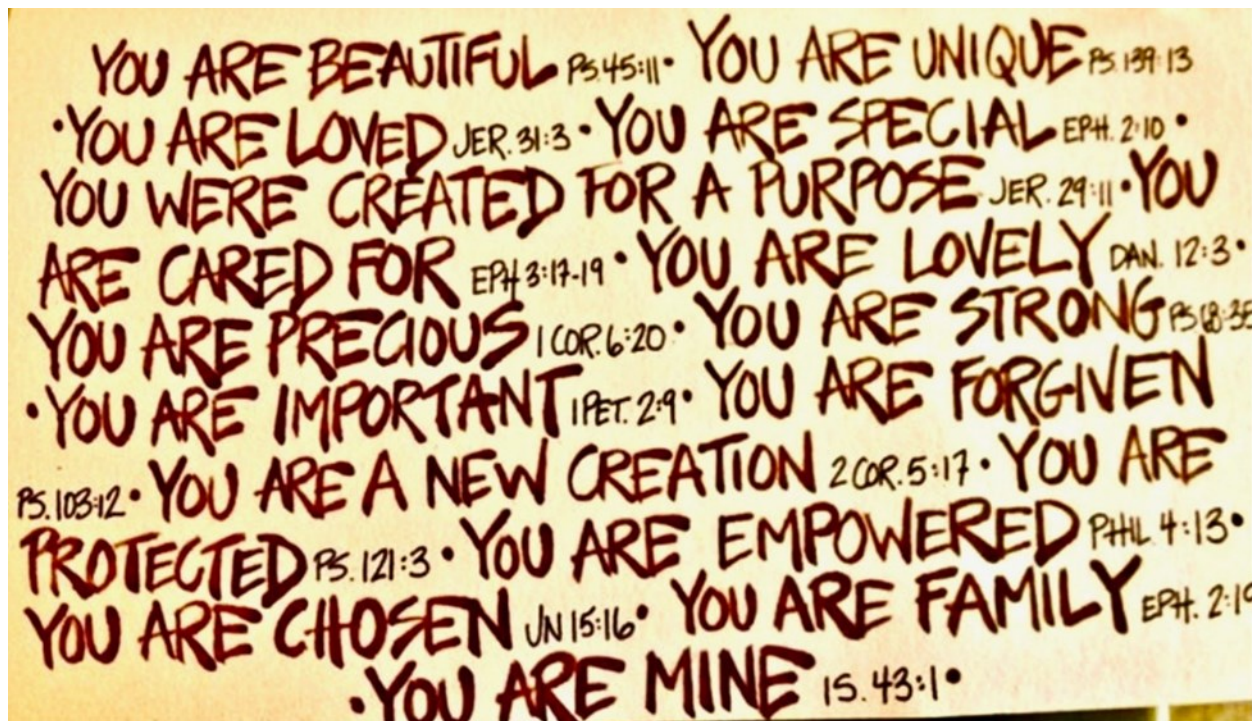 YOU ARE BEAUTIFUL PS.45:11• YOU ARE UNIQUE PS.139:13
•YOU ARE LOVED JER. 31:3•YOU ARE SPECIAL EPH. 2:10 •
YOU WERE CREATED FOR A PURPOSE JER. 29:11•YOU
ARE CARED FOR EPH 3:17-19 •YOU ARE LOVELY DAN. 12:3•
YOU ARE PRECIOUS 1 COR. 6:20• YOU ARE STRONG PS 68:35
•YOU ARE IMPORTANT 1 PET. 2:9• YOU ARE FORGIVEN
PS. 103:12• YOU ARE A NEW CREATION 2 COR. 5:17 • YOU ARE
PROTECTED PS. 121:3 •YOU ARE EMPOWERED PHIL 4:13•
YOU ARE CHOSEN JN 15:16• YOU ARE FAMILY EPH.
•YOU ARE MINE IS. 43:1•